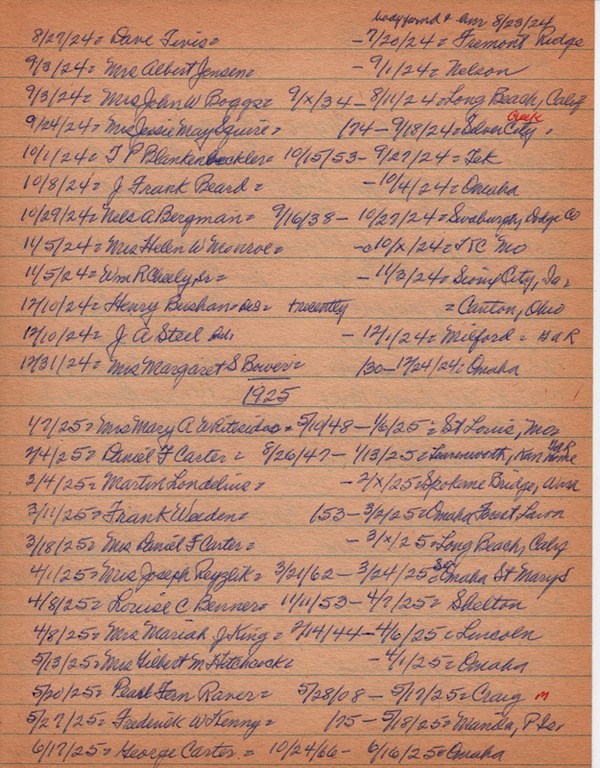 body found & bur 8/23/24
8/27/24= Dave Tivis= -7/20/24= Fremont Ridge
9/3/24= Mrs Albert Jensen= -9/1/24= Nelson
9/3/24= Mrs John W Boggs= 9/x/34-8/11/24=Long Beach, Calif
Creek
9/24/24= Mrs Jessie May Squire= /74-9/18/24=Silver City=
10/1/24= T P Blankenbeckler= 10/15/53-9/27/24= Tek
10/8/24= J Frank Beard= -10/4/24= Omaha
10/29/24= Nels A Bergman= 9/16/38-10/27/24= Swaburgh, Dodge Co
11/5/24= Mrs Helen W Monroe= -c10/x/24= KC Mo
11/5/24= Wm R Cheely, Sr= -11/3/24= Sioux City, Ia=
12/10/24= Henry Bushan= recently =Canton, Ohio
12/10/24= J A Steel -12/1/24= Milford = GAR
12/31/24= Mrs Margaret S Bower= /30-12/24/24= Omaha
1925
1/7/25= Mrs Mary A Whitesides= 5/10/48-1/6/25= St Louis, Mo=
2/4/25= Daniel F Carter= 8/26/47-1/13/25= Leavenworth, Kan Home
2/4/25= Martin Londelius= -2/x/25=Spokane Bridge, Wn
3/11/25= Frank Weeden= /53-3/2/25=Omaha Forest Lawn
3/18/25= Mrs Daniel F Carter= -3/x/25=Long Beach, Calif
4/1/25= Mrs Joseph Rezlik= 3/21/62-3/24/25=So Omaha St Marys
4/8/25= Louise C Benner= 11/11/53-4/7/25= Shelton
4/8/25= Mrs Mariah J King= 2/14/44-4/6/25= Lincoln
5/13/25= Mrs Gilbert M Hitchcock= -4/1/25= Omaha
5/20/25= Pearl Fern Raver= 5/28/08-5/17/25= Craig m
5/27/25= Frederick W Kenny= /75-5/18/25= Manila, P Is=
6/17/25= George Carter= 10/24/66-6/16/25=Omaha